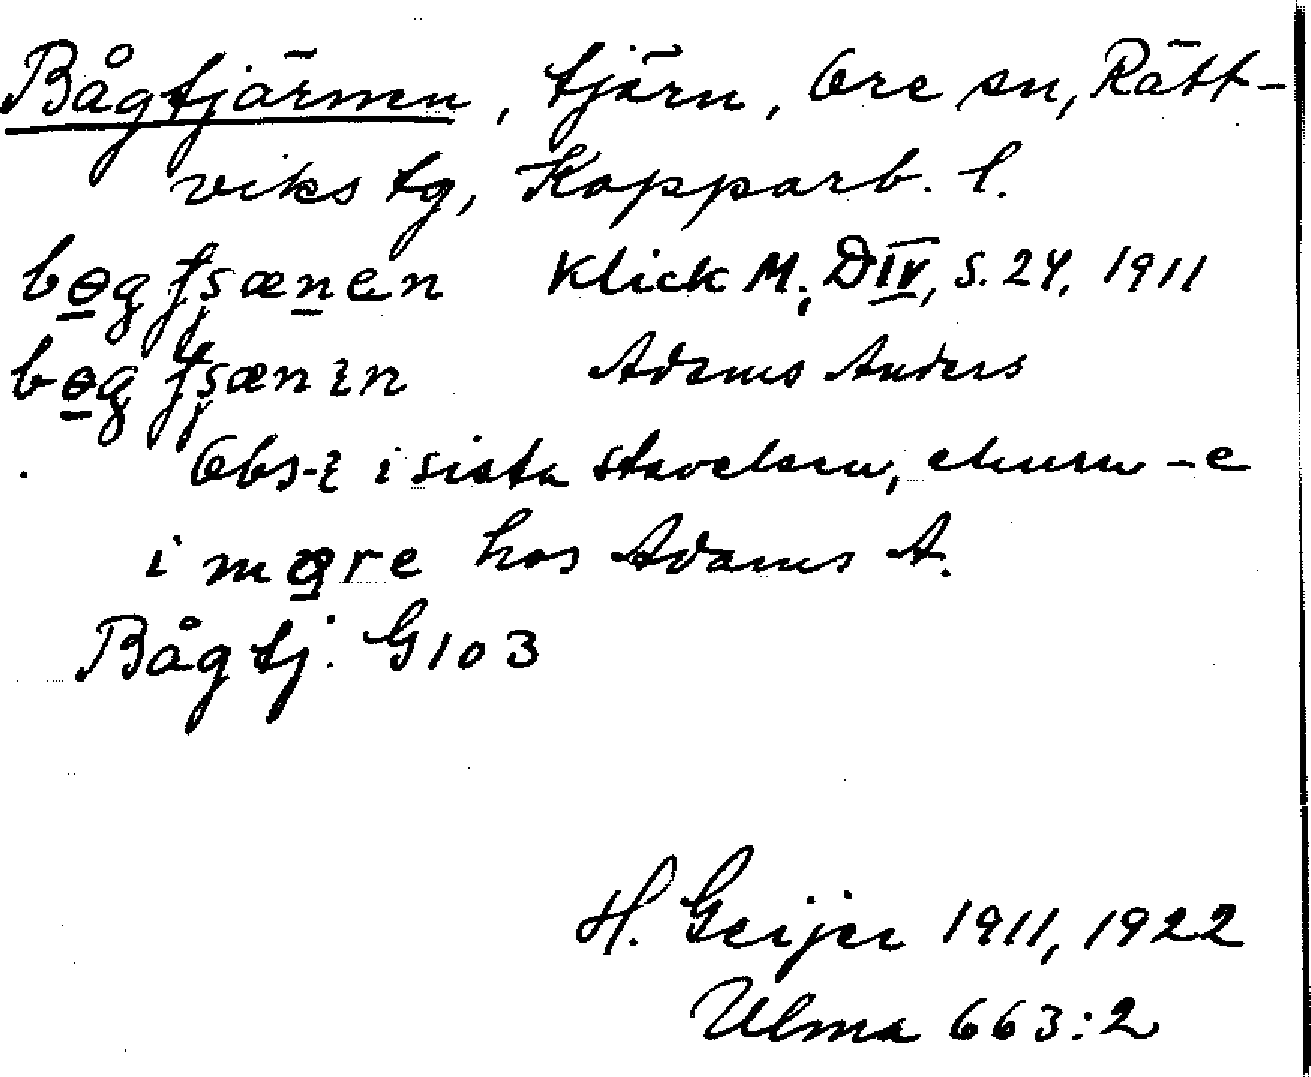 Bågtjärnen, tjärn, Ore sn, Rätt-
viks tg, Kopparb. l.
bɵg Klick M., DIV, S. 24, 1911
bɵg Adams Anders
Obs. -ɪ i sista stavelsen, ehuru -e
i mɵre hos Adams A.
Bågtj. G103
H. Geijer 1911, 1922
Ulma 663:2